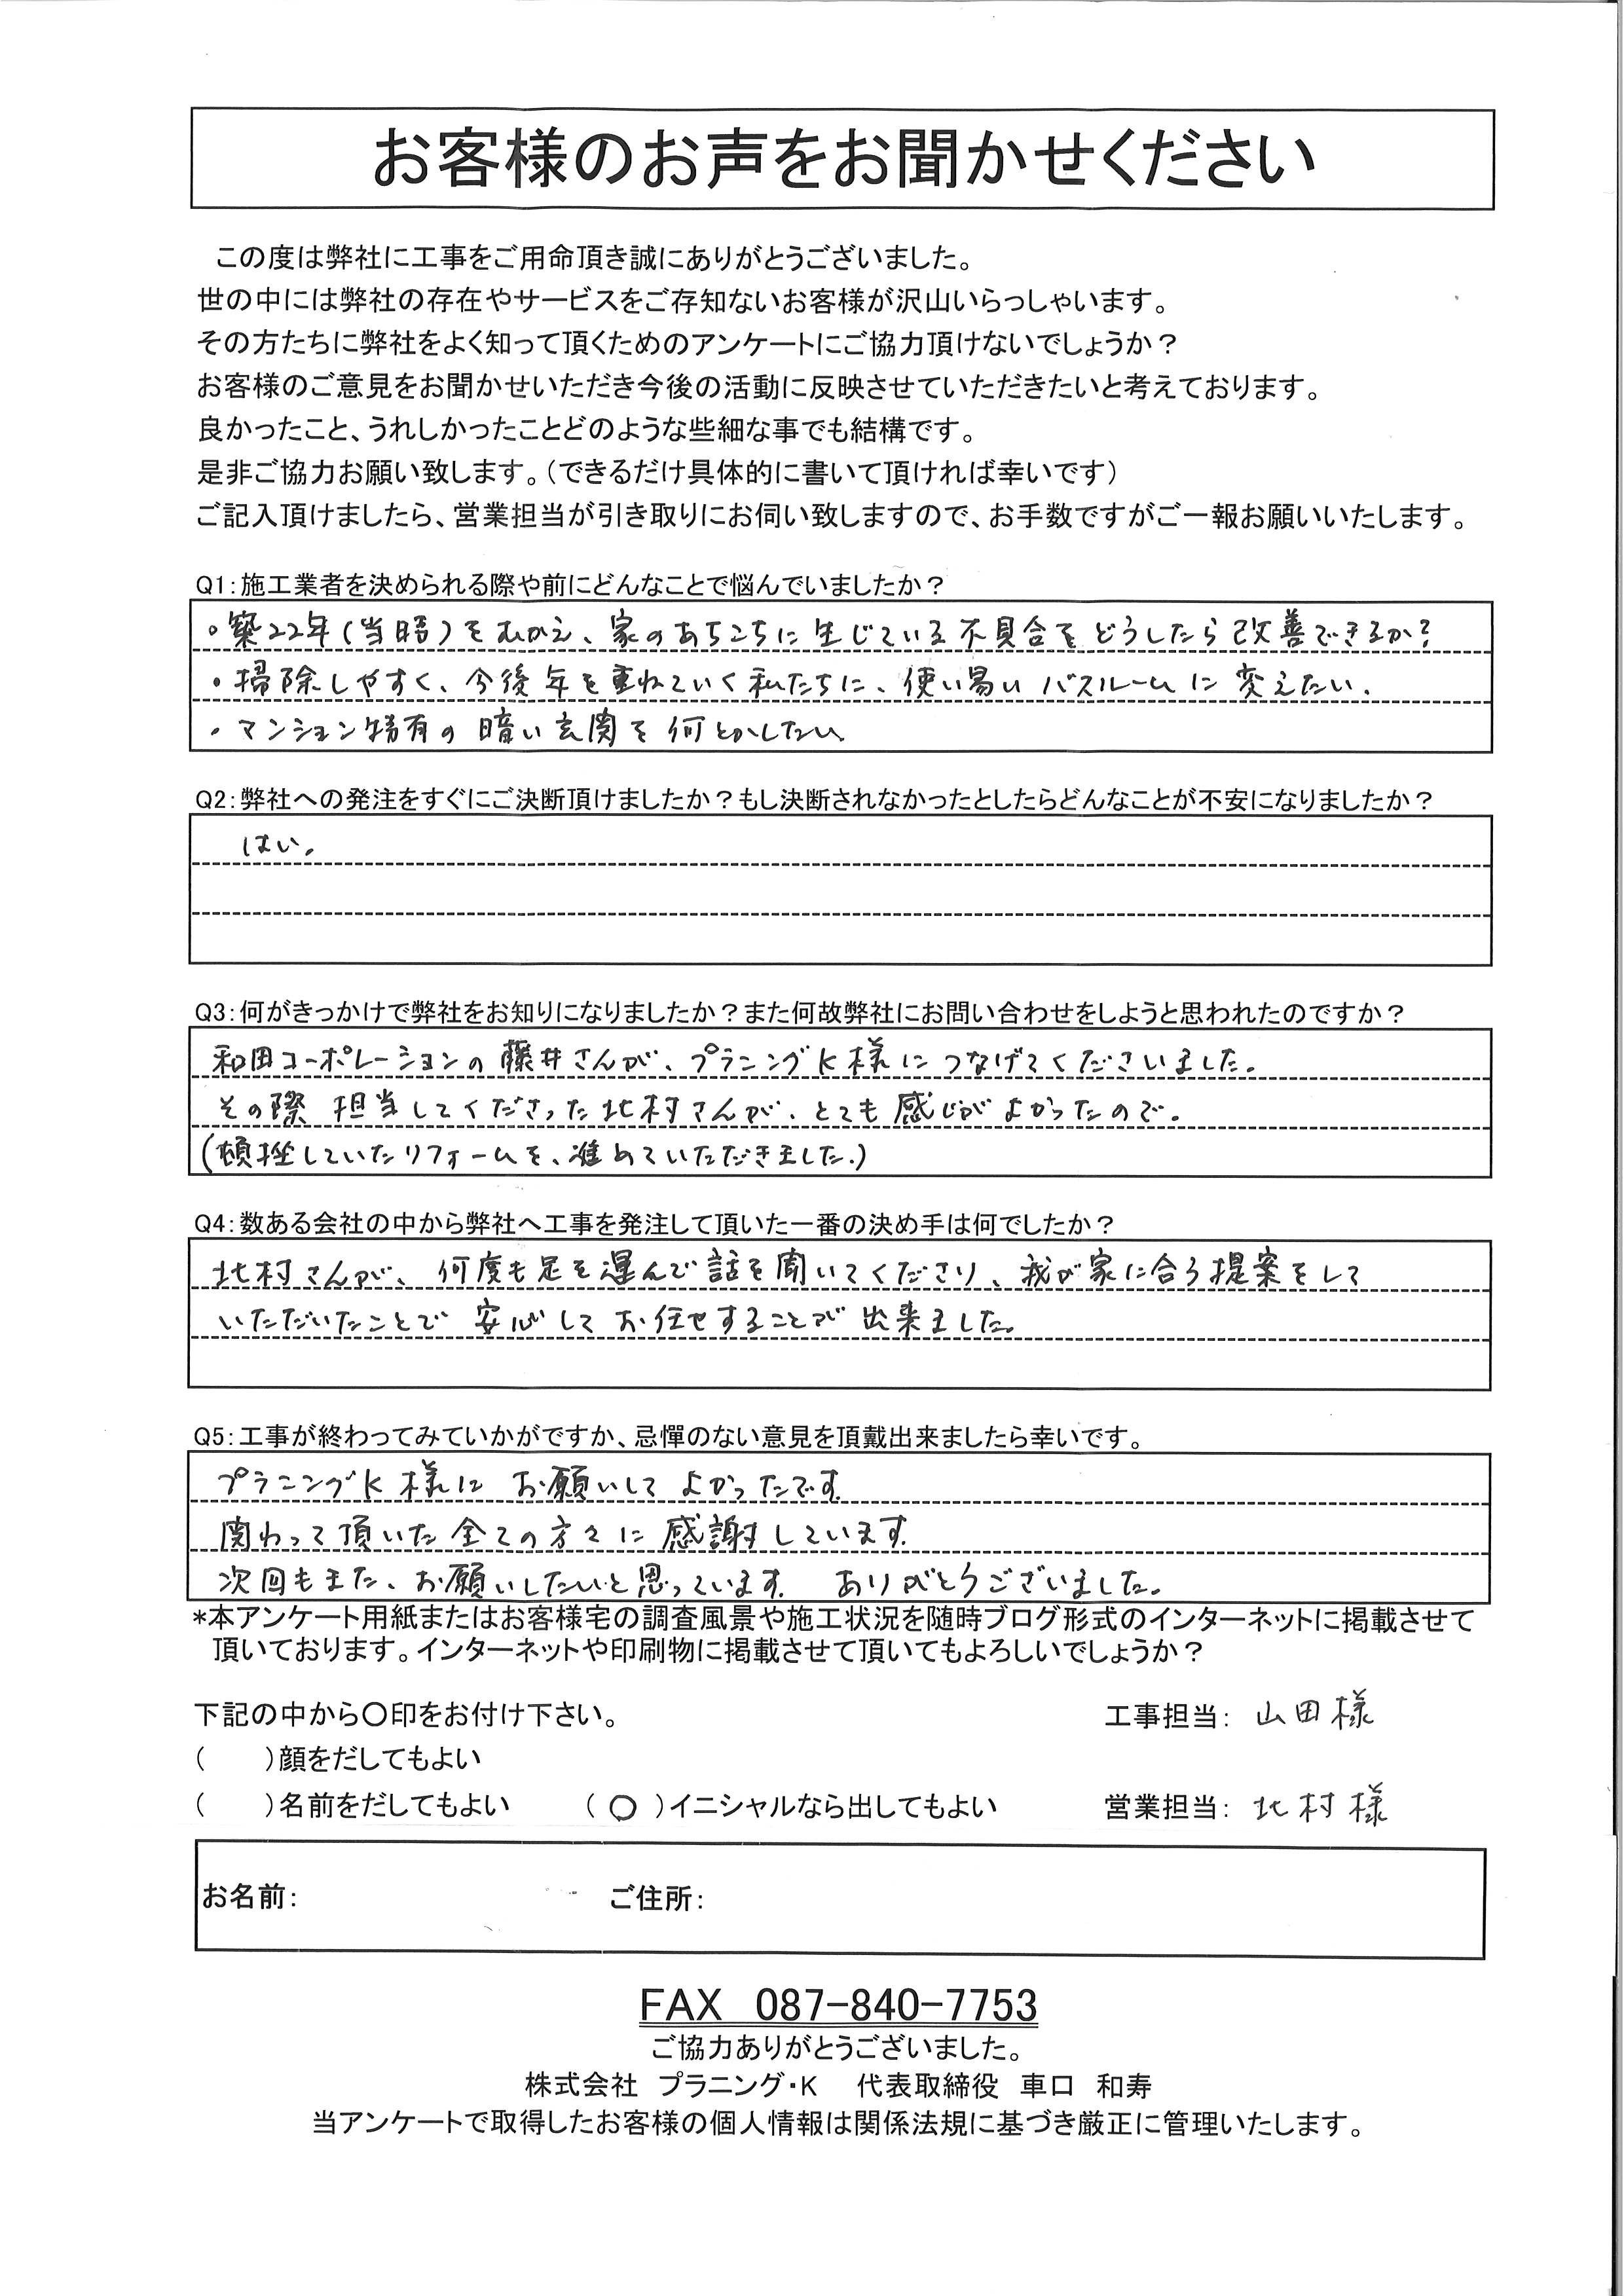 お客様のお声をお聞かせください
この度は弊社に工事をご用命頂き誠にありがとうございました。
世の中には弊社の存在やサービスをご存知ないお客様が沢山いらっしゃいます。
その方たちに弊社をよく知って頂くためのアンケートにご協力頂けないでしょうか？
お客様のご意見をお聞かせいただき今後の活動に反映させていただきたいと考えております。
良かったこと、うれしかったことどのような些細な事でも結構です。
是非ご協力お願い致します。（できるだけ具体的に書いて頂ければ幸いです）
ご記入頂けましたら、営業担当が引き取りにお伺い致しますので、お手数ですがご一報お願いいたします。
Q1：施工業者を決められる際や前にどんなことで悩んでいましたか？
・築22年（当時）をむかえ、家のあちこちに生じている不具合をどうしたら改善できるか？
・掃除しやすく、今後年を重ねていく私たちに、使い易いバスルームに変えたい。
・マンション特有の暗い玄関を何とかしたい
Q2：弊社への発注をすぐにご決断頂けましたか？もし決断されなかったとしたらどんなことが不安になりましたか？
はい。
Q3：何がきっかけで弊社をお知りになりましたか？また何故弊社にお問い合わせをしようと思われたのですか？
和田コーポレーションの藤井さんが、プラニングK様につなげてくださいました。
その際担当してくださった北村さんが、とても感じがよかったので。
（頓挫していたリフォームを、進めていただきました。）
Q4：数ある会社の中から弊社へ工事を発注して頂いた一番の決め手は何でしたか？
北村さんが、何度も足を運んで話を聞いてくださり、我が家に合う提案をして
いただいたことで安心してお任せすることが出来ました。
Q5：工事が終わってみていかがですか、忌憚のない意見を頂戴出来ましたら幸いです。
プラニングK様にお願いしてよかったです。
関わって頂いた全ての方々に感謝しています。
次回もまた、お願いしたいと思っています。 ありがとうございました。
*本アンケート用紙またはお客様宅の調査風景や施工状況を随時ブログ形式のインターネットに掲載させて
頂いております。インターネットや印刷物に掲載させて頂いてもよろしいでしょうか？
下記の中から〇印をお付け下さい。 工事担当： 山田様
（　　）顔をだしてもよい
（　　）名前をだしてもよい （〇）イニシャルなら出してもよい 営業担当： 北村様
お名前： ご住所：
FAX 087-840-7753
ご協力ありがとうございました。
株式会社 プラニング・K 代表取締役 車口 和寿
当アンケートで取得したお客様の個人情報は関係法規に基づき厳正に管理いたします。